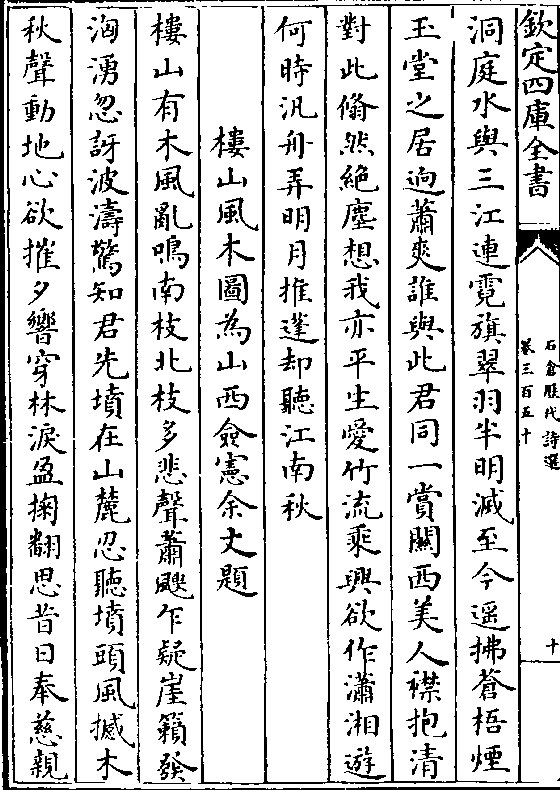 欽定四庫全書
石倉歷代詩選
卷三百五十
十
洞庭水與三江連霓旗翠羽半明滅至今遥拂蒼梧煙
玉堂之居逈蕭爽誰與此君同一賞關西美人襟抱清
對此翛然絶塵想我亦平生愛竹流乘興欲作瀟湘遊
何時汎舟弄明月推蓬却聽江南秋
樓山風木圖為山西僉憲余丈題
樓山有木風亂鳴南枝北枝多悲聲蕭颼乍疑崖籟發
洶湧忽訝波濤驚知君先墳在山麓忍聽墳頭風撼木
秋聲動地心欲摧夕響穿林淚盈掬翻思昔日奉慈親